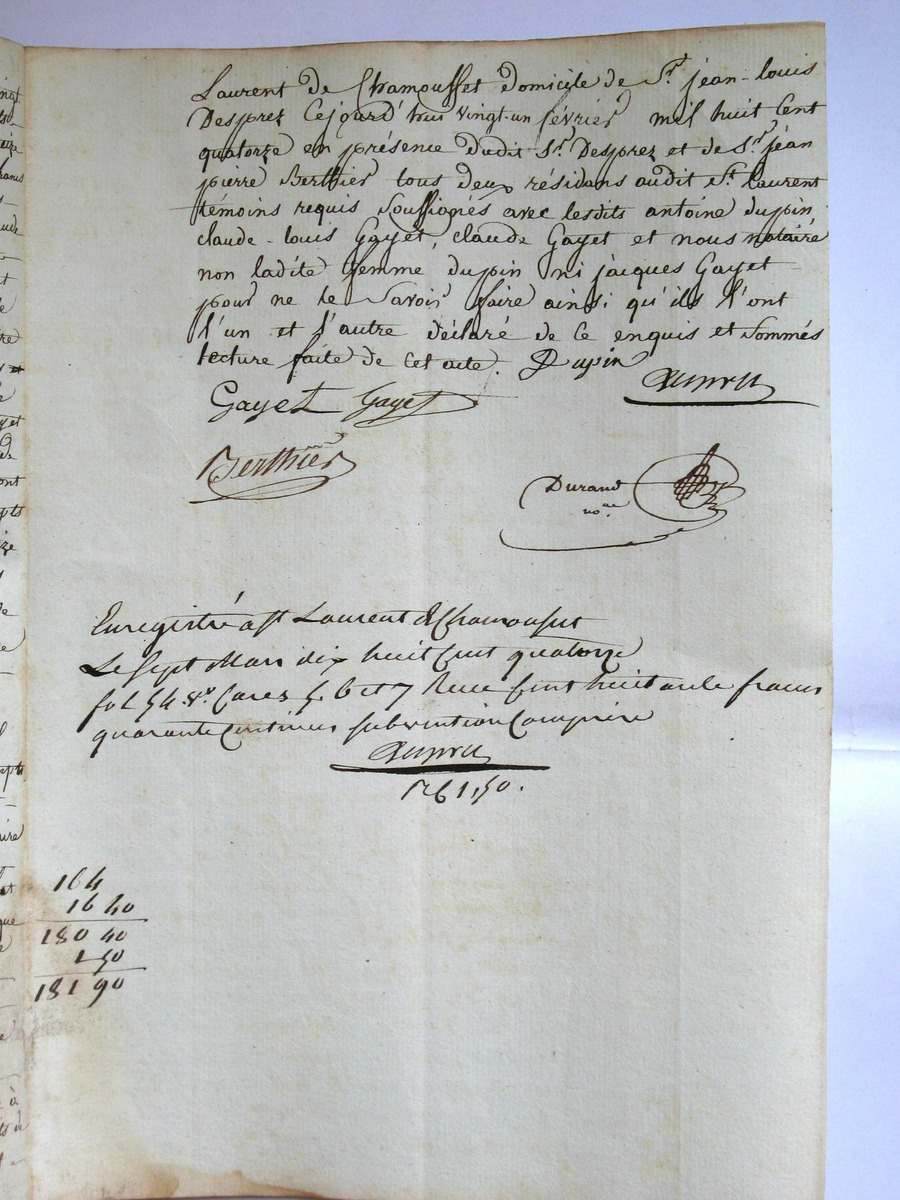 Laurent de Chamousset domicile de Sr. jean-louis
Desprez Cejourd'hui vingt-un février mil huit Cent
quatorze en présence dudit Sr. Desprez et de Sr. jean
pierre Berthier tous deux résidans audit St. laurent
témoins requis Soussignés avec lesdits antoine dupin
claude-louis Gayet, claude Gayet et nous notaire
non ladite femme dupin ni jacques Gayet
pour ne le Savoir faire ainsi qu'ils l'ont
l'un et l'autre déclaré de Ce enquis et Sommés
lecture faite de cet acte. Dupin
Gayet Gayet
Berthier
Durand
nore
Enregistré a St Laurent de Chamousset
Le Sept Mars dix huit Cent quatorze
fol 54 vo. Cases 5, 6 et 7 Recu Cent huit francs
quarante Centimes subvention Comprise
164
16 40
180 40
1 50
181 90